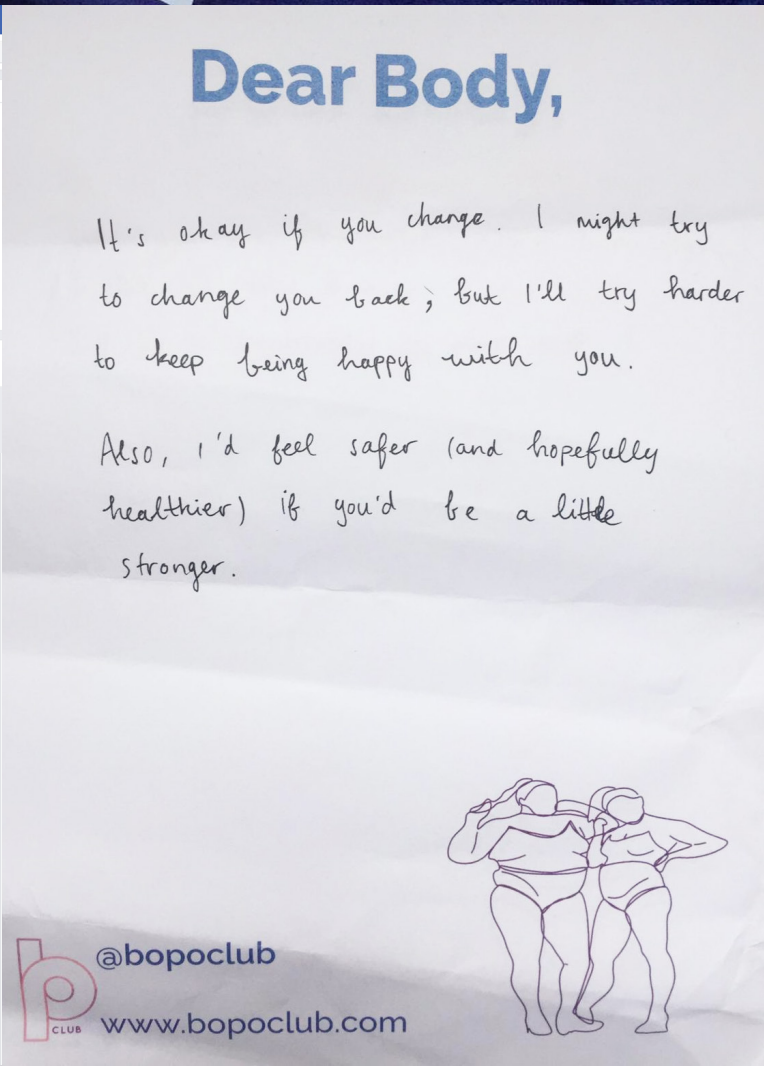 Dear Body,
It's okay if you change. I might try
to change you back; but I'll try harder
to keep being happy with you.
Also, I'd feel safer (and hopefully
healthier) if you'd be a little
stronger.
@bopoclub
bp
CLUB
www.bopoclub.com